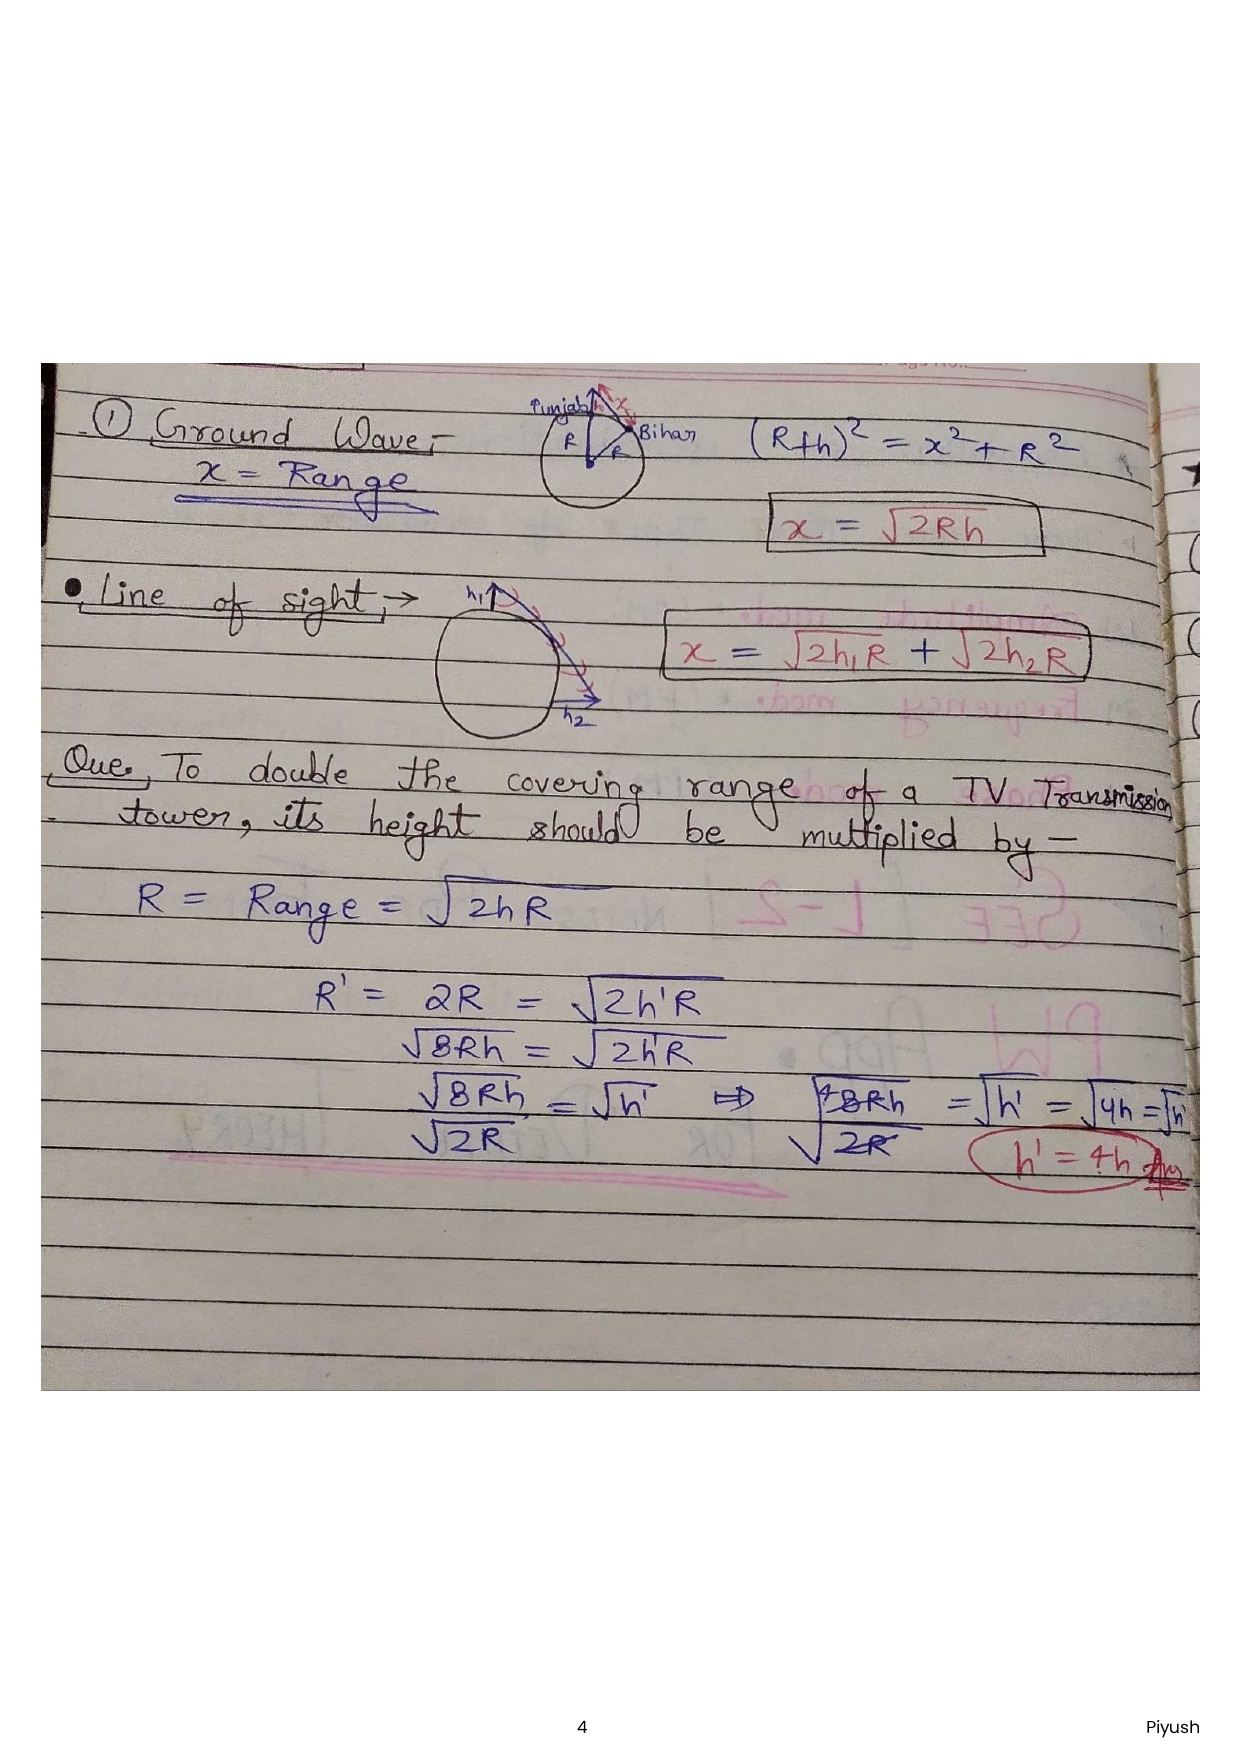 ① Ground Wave,-
x = Range
Punjab
h
x
R
R
Bihar
(R+h)² = x² + R²
x = √2Rh
• Line of sight, →
h₁
h₂
x = √2h₁R + √2h₂R
Que, To double the covering range of a TV Transmission
tower, its height should be multiplied by —
R = Range = √2hR
R' = 2R = √2h'R
√8Rh = √2h'R
√8Rh / √2R = √h' ⇒ √⁴8Rh / √2R = √h' = √4h = √h'
h' = 4h Ans
4
Piyush